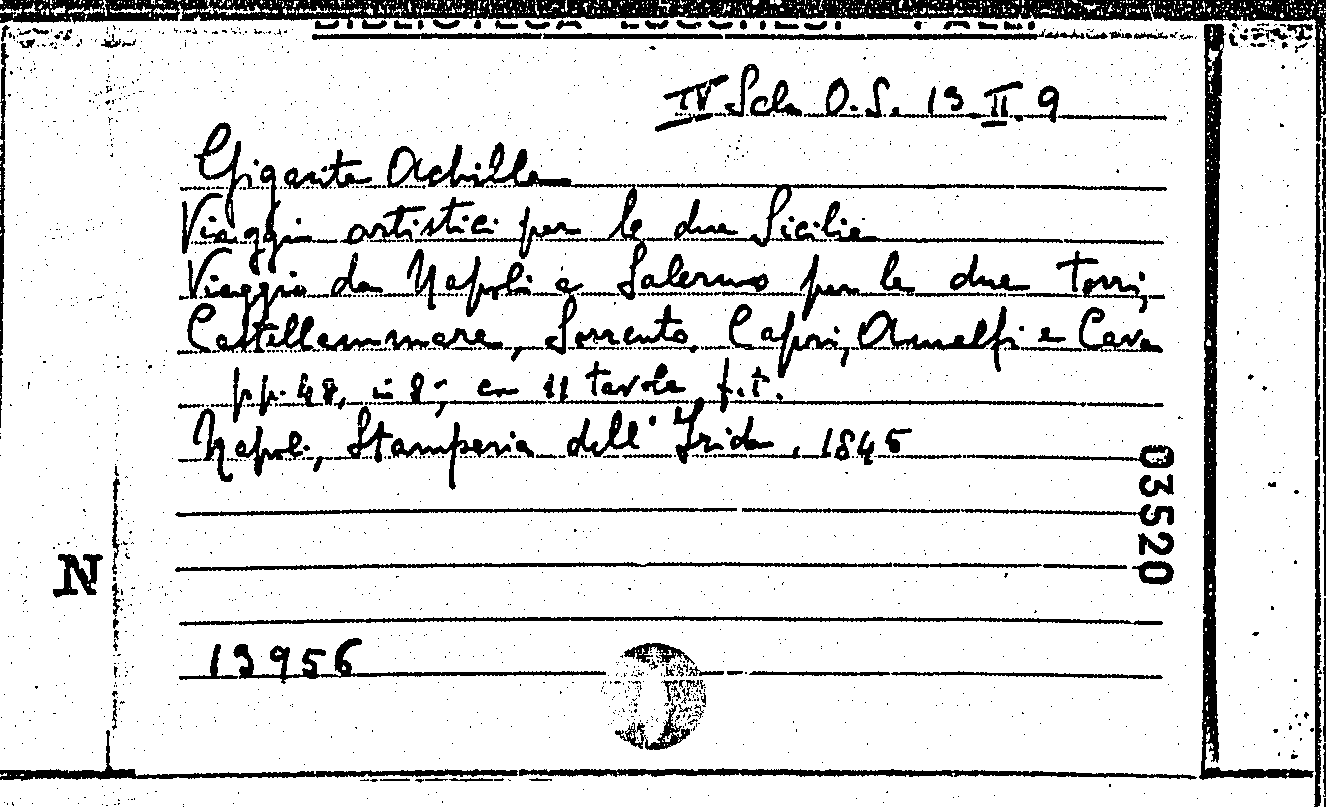 BIBLIOTECA LUCCHESI PALLI
IV Sala O.S. 13 II. 9
Gigante Achille
Viaggi artistici per le due Sicilie
Viaggio da Napoli a Salerno per le due Torri,
Castellammare, Sorrento, Capri, Amalfi e Cava
pp. 48, in 8°; con 11 tavole f.t.
Napoli, Stamperia dell'Iride, 1845
03520
N
13956